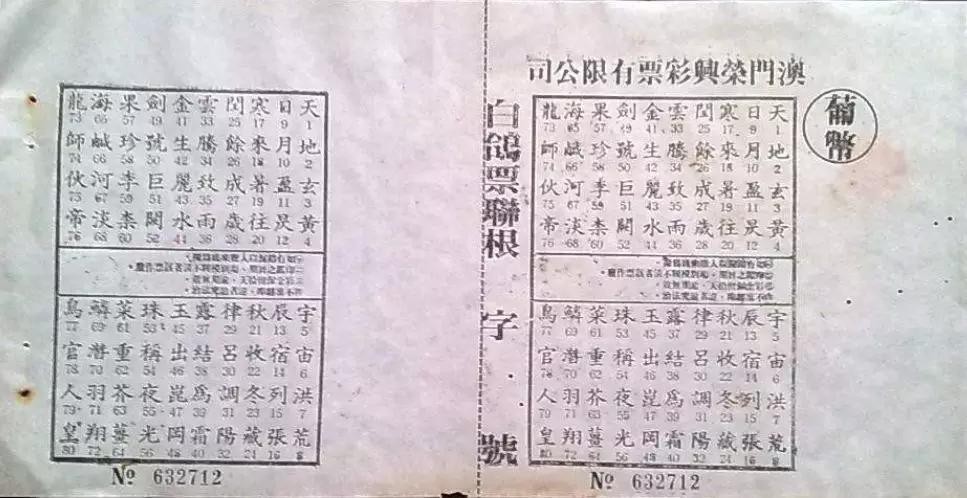 澳門榮興彩票有限公司
葡幣
天 1 地 2 玄 3 黃 4
日 9 月 10 盈 11 昃 12
寒 17 來 18 暑 19 往 20
閏 25 餘 26 成 27 歲 28
雲 33 騰 34 致 35 雨 36
金 41 生 42 麗 43 水 44
劍 49 號 50 巨 51 闕 52
果 57 珍 58 李 59 柰 60
海 65 鹹 66 河 67 淡 68
龍 73 師 74 伙 75 帝 76
宇 5 宙 6 洪 7 荒 8
辰 13 宿 14 列 15 張 16
秋 21 收 22 冬 23 藏 24
律 29 呂 30 調 31 陽 32
露 37 結 38 爲 39 霜 40
玉 45 出 46 崑 47 岡 48
珠 53 稱 54 夜 55 光 56
菜 61 重 62 芥 63 薑 64
鱗 69 潛 70 羽 71 翔 72
鳥 77 官 78 人 79 皇 80
№ 632712
白鴿票聯根 字 號
天 1 地 2 玄 3 黃 4
日 9 月 10 盈 11 昃 12
寒 17 來 18 暑 19 往 20
閏 25 餘 26 成 27 歲 28
雲 33 騰 34 致 35 雨 36
金 41 生 42 麗 43 水 44
劍 49 號 50 巨 51 闕 52
果 57 珍 58 李 59 柰 60
海 65 鹹 66 河 67 淡 68
龍 73 師 74 伙 75 帝 76
宇 5 宙 6 洪 7 荒 8
辰 13 宿 14 列 15 張 16
秋 21 收 22 冬 23 藏 24
律 29 呂 30 調 31 陽 32
露 37 結 38 爲 39 霜 40
玉 45 出 46 崑 47 岡 48
珠 53 稱 54 夜 55 光 56
菜 61 重 62 芥 63 薑 64
鱗 69 潛 70 羽 71 翔 72
鳥 77 官 78 人 79 皇 80
№ 632712